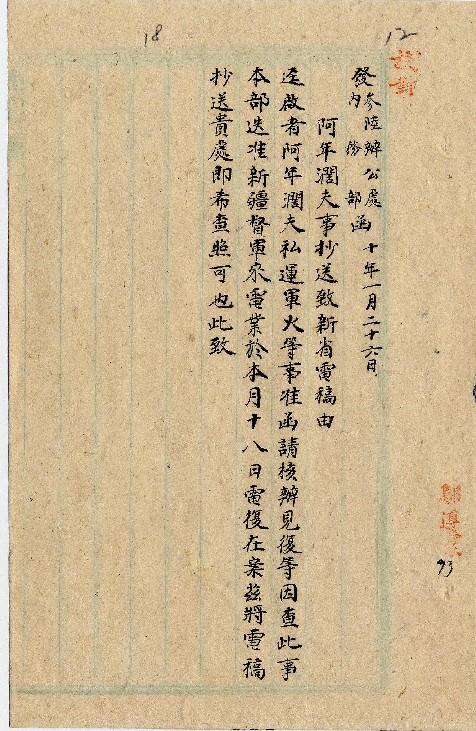 18
12
發參陸辦公處
內務部函 十年一月二十六日
阿年濶夫事抄送致新省電稿由
逕啟者阿年濶夫私運軍火等事准函請核辦見復等因查此事
本部迭准新疆督軍來電業於本月十八日電復在案茲將電稿
抄送貴處即希查照可也此致
93